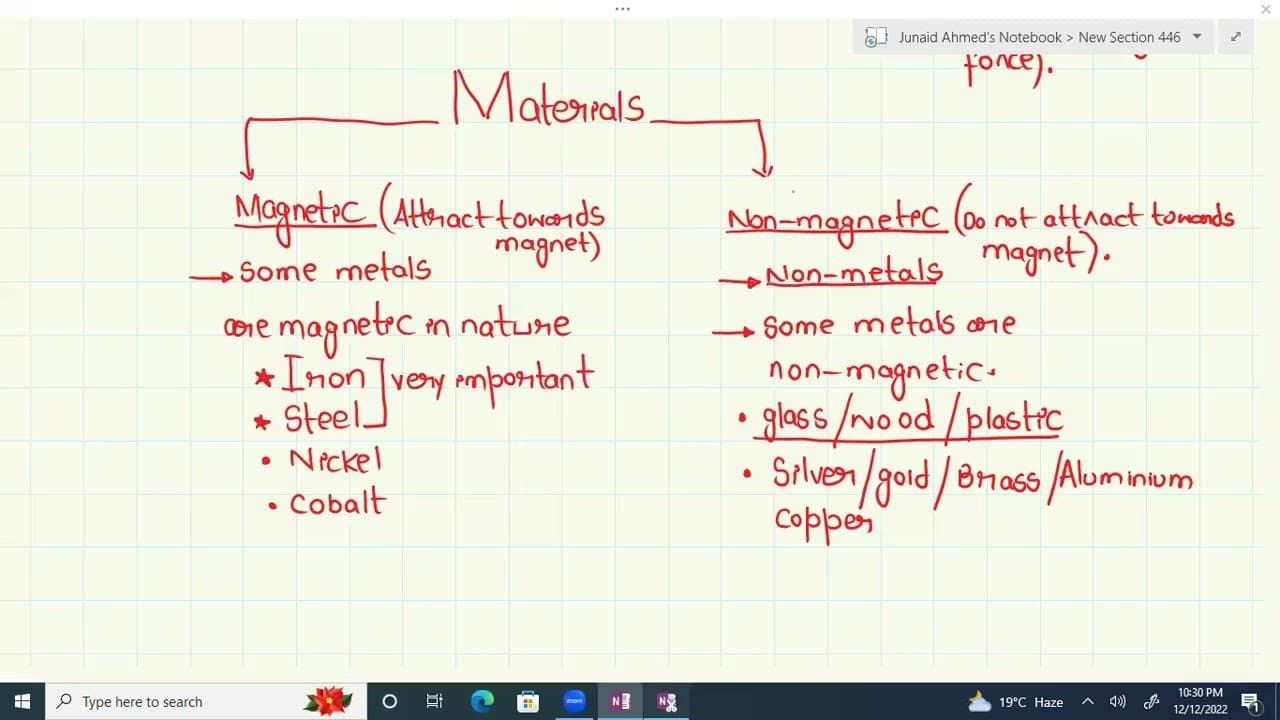 ...
Junaid Ahmed's Notebook > New Section 446
force).
Materials
Magnetic (Attract towards
magnet)
→ Some metals
are magnetic in nature
★ Iron ] very important
★ Steel
• Nickel
• Cobalt
Non-magnetic (Do not attract towards
magnet).
→ Non-metals
→ Some metals are
non-magnetic.
• glass/wood/plastic
• Silver/gold/Brass/Aluminium
Copper
Type here to search
zoom
19°C Haze
10:30 PM
12/12/2022
1